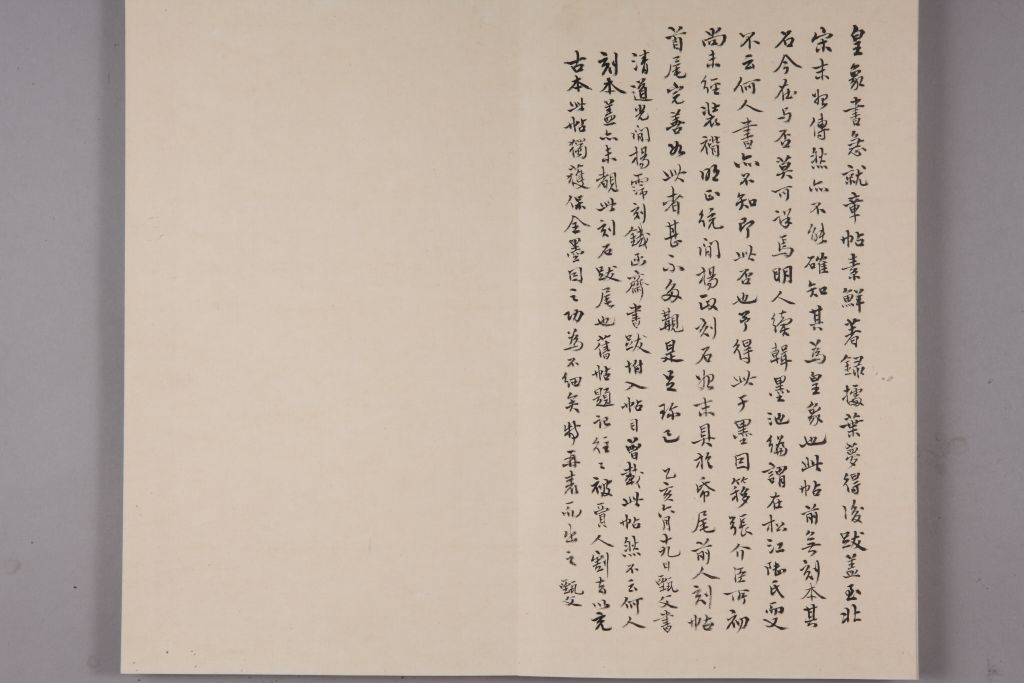 皇象書急就章帖素鮮著錄據葉夢得後跋蓋至北
宋末始傳然亦不能確知其為皇象也此帖前無刻本其
石今在与否莫可詳焉明人續輯墨池編謂在松江陸氏更
不云何人書亦不知即此否也予得此于墨因簃張介臣所初
尚未經裝褙明正統間楊政刻石始末具於帋尾前人刻帖
首尾完善如此者甚不多觀是足珎已 乙亥六月十九日甄父書
清道光間楊霈刻鐵函齋書跋坿入帖目曾載此帖然不云何人
刻本蓋亦未覩此刻石跋尾也舊帖題記往〻被賈人割去以充
古本此帖獨獲保全墨因之功為不細矣特再表而出之 甄父